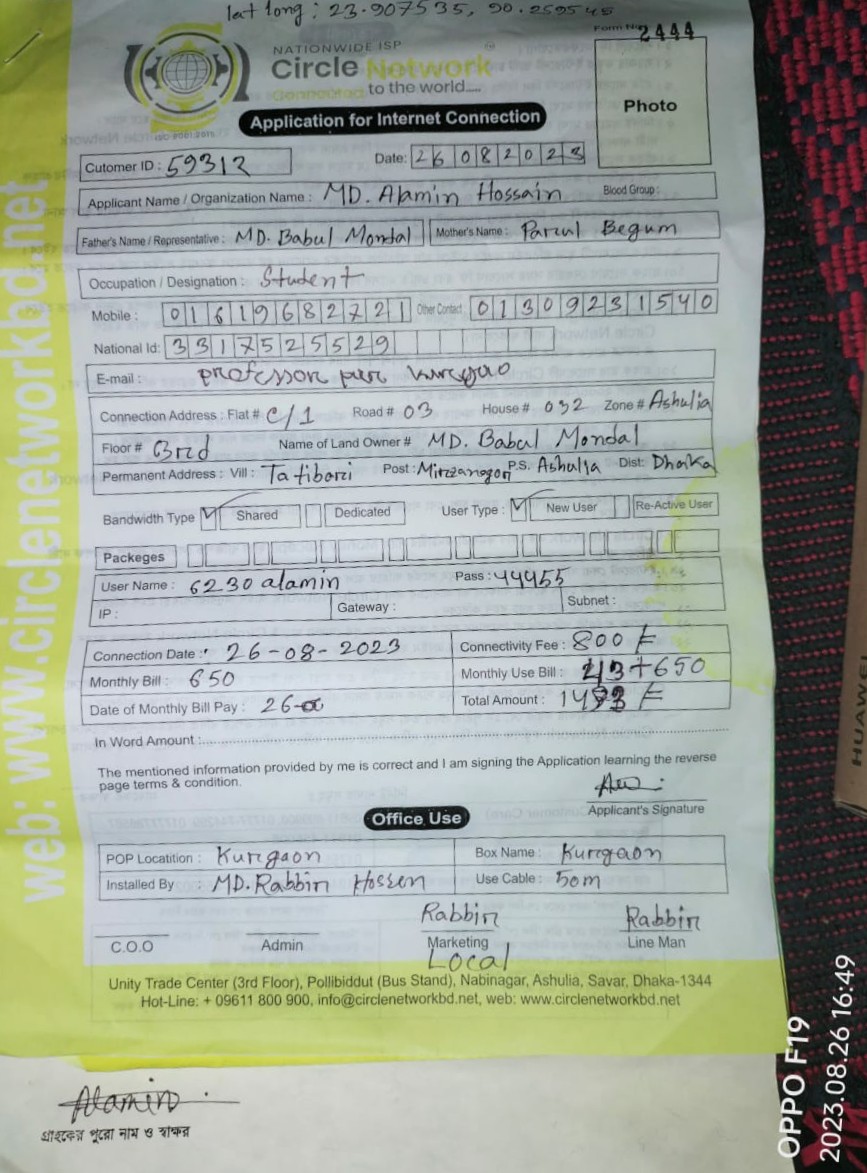 lat long : 23.907535, 90.259545
Form No 2444
NATIONWIDE ISP
Circle Network
Connected to the world.....
ISO 9001:2015
Photo
Application for Internet Connection
Cutomer ID : 59312
Date: 26082023
Applicant Name / Organization Name : MD. Alamin Hossain Blood Group :
Father's Name / Representative : MD. Babul Mondal Mother's Name : Parul Begum
Occupation / Designation : Student
Mobile : 01619682721 Other Contact 01309231540
National Id: 3317525529
E-mail : professor par kurgao
Connection Address : Flat # C/1 Road # 03 House # 032 Zone # Ashulia
Floor # 3rd Name of Land Owner # MD. Babul Mondal
Permanent Address : Vill : Tatibari Post : Mirzanagor P.S. Ashulia Dist: Dhaka
Bandwidth Type Shared Dedicated User Type : New User Re-Active User
Packeges
User Name : 6230 alamin Pass : 44955
IP : Gateway : Subnet :
Connection Date : 26-08-2023 Connectivity Fee : 800/=
Monthly Bill : 650 Monthly Use Bill : +650
Date of Monthly Bill Pay : 26- Total Amount :
In Word Amount :
The mentioned information provided by me is correct and I am signing the Application learning the reverse
page terms & condition.
Applicant's Signature
Office Use
POP Locatition : Kurgaon Box Name : Kurgaon
Installed By : MD. Rabbin Hossen Use Cable : 50m
Rabbin Rabbin
C.O.O Admin Marketing Line Man
Local
Unity Trade Center (3rd Floor), Pollibiddut (Bus Stand), Nabinagar, Ashulia, Savar, Dhaka-1344
Hot-Line: + 09611 800 900, info@circlenetworkbd.net, web: www.circlenetworkbd.net
web: www.circlenetworkbd.net
Alamin
গ্রাহকের পুরো নাম ও স্বাক্ষর
HUAWEI
OPPO F19
2023.08.26 16:49